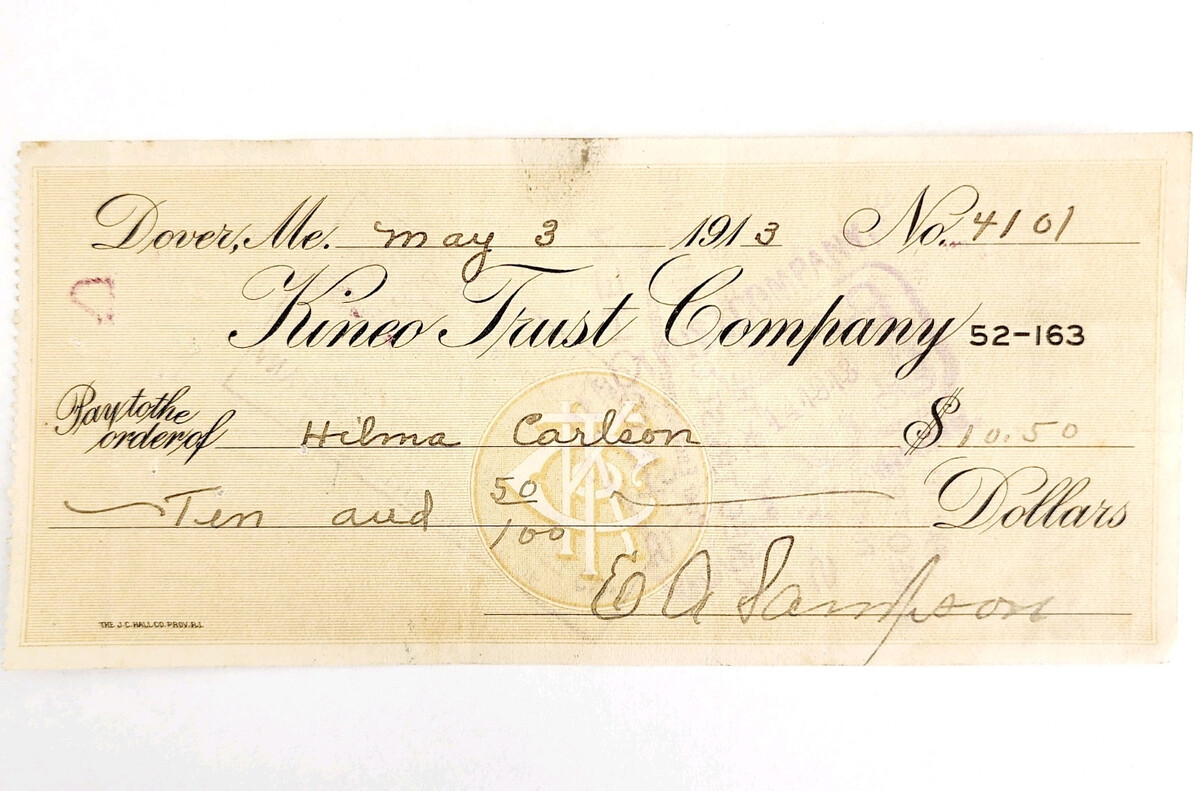 Dover, Me. May 3 1913 No. 4101
Kineo Trust Company 52-163
Pay to the order of Hilma Carlson $10.50
Ten and 50/100 Dollars
E A Sampson
THE J.C. HALL CO. PROV. R.I.
COMPANY